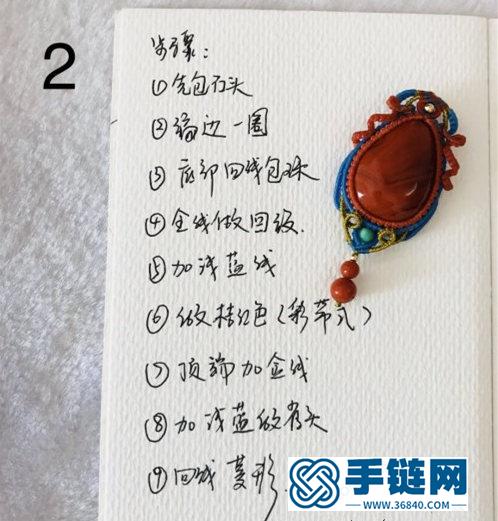 2
步骤：
①先包石头
②编边一圈
③底部回线包珠
④金线做回纹.
⑤加浅蓝线
⑥做桔红色（彩带式）
⑦顶端加金线
⑧加浅蓝做肩头
⑨回线菱形.
手链网
WWW.36840.COM